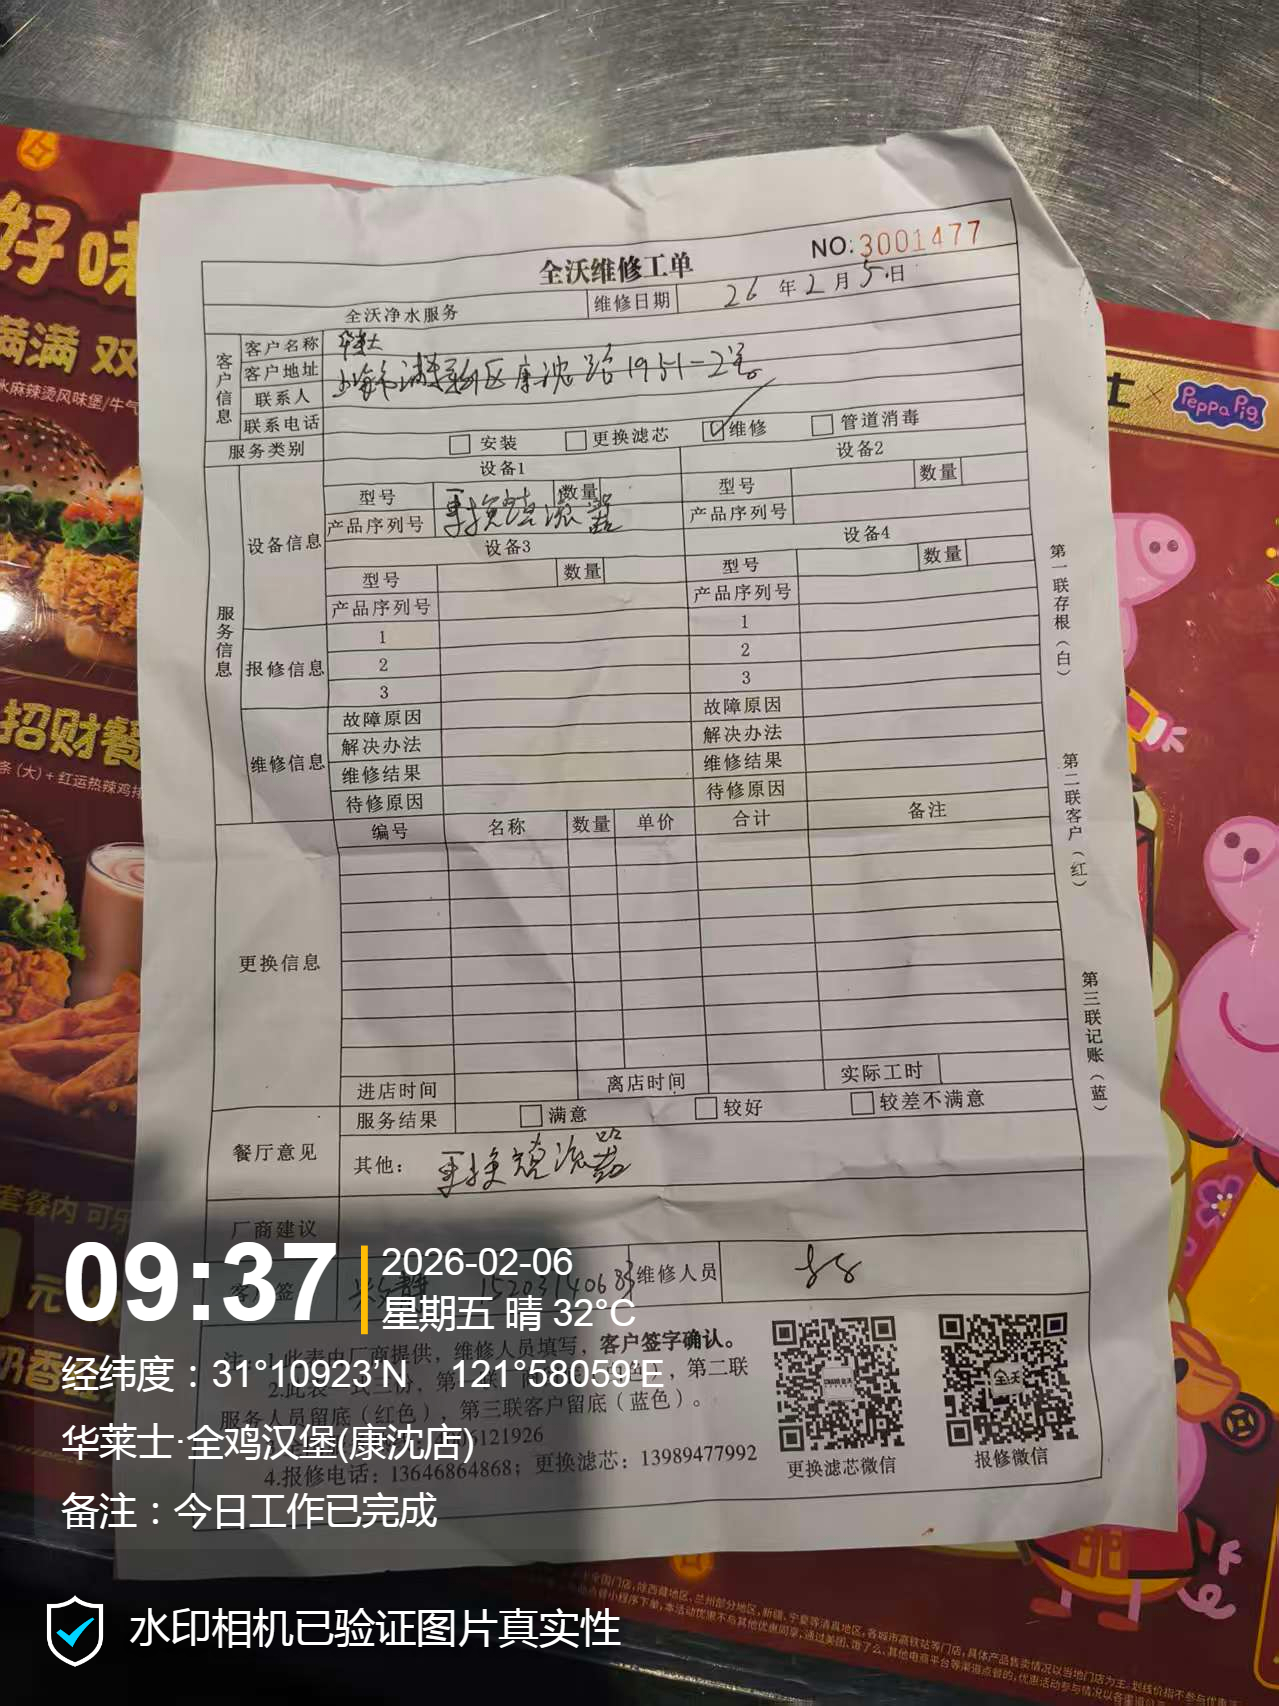 好味
满满 双
水麻辣烫风味堡/牛气
招财餐
条(大)+红运热辣鸡排
套餐内 可乐
元
奶香
士 × Peppa Pig
NO:3001477
全沃维修工单
全沃净水服务 维修日期 26年2月5日
客户信息
客户名称 华莱士
客户地址 上海市浦东新区康沈路1951-2号
联系人
联系电话
服务类别 安装 更换滤芯 ☑维修 管道消毒
服务信息
设备信息
设备1 设备2
型号 数量 型号 数量
更换前滤器
产品序列号 产品序列号
设备3 设备4
型号 数量 型号 数量
产品序列号 产品序列号
报修信息
1 1
2 2
3 3
维修信息
故障原因 故障原因
解决办法 解决办法
维修结果 维修结果
待修原因 待修原因
更换信息
编号 名称 数量 单价 合计 备注
进店时间 离店时间 实际工时
餐厅意见
服务结果 满意 较好 较差不满意
其他:更换前滤器
厂商建议
维修人员
第一联存根(白)
第二联客户(红)
第三联记账(蓝)
注:1.此表由厂商提供,维修人员填写,客户签字确认。
2.此表一式三份,第一联 第二联
服务人员留底(红色),第三联客户留底(蓝色)。
6121926
4.报修电话:13646864868;更换滤芯:13989477992
更换滤芯微信 报修微信
全沃
09:37
2026-02-06
星期五 晴 32°C
经纬度:31°10923'N 121°58059'E
华莱士·全鸡汉堡(康沈店)
备注:今日工作已完成
水印相机已验证图片真实性